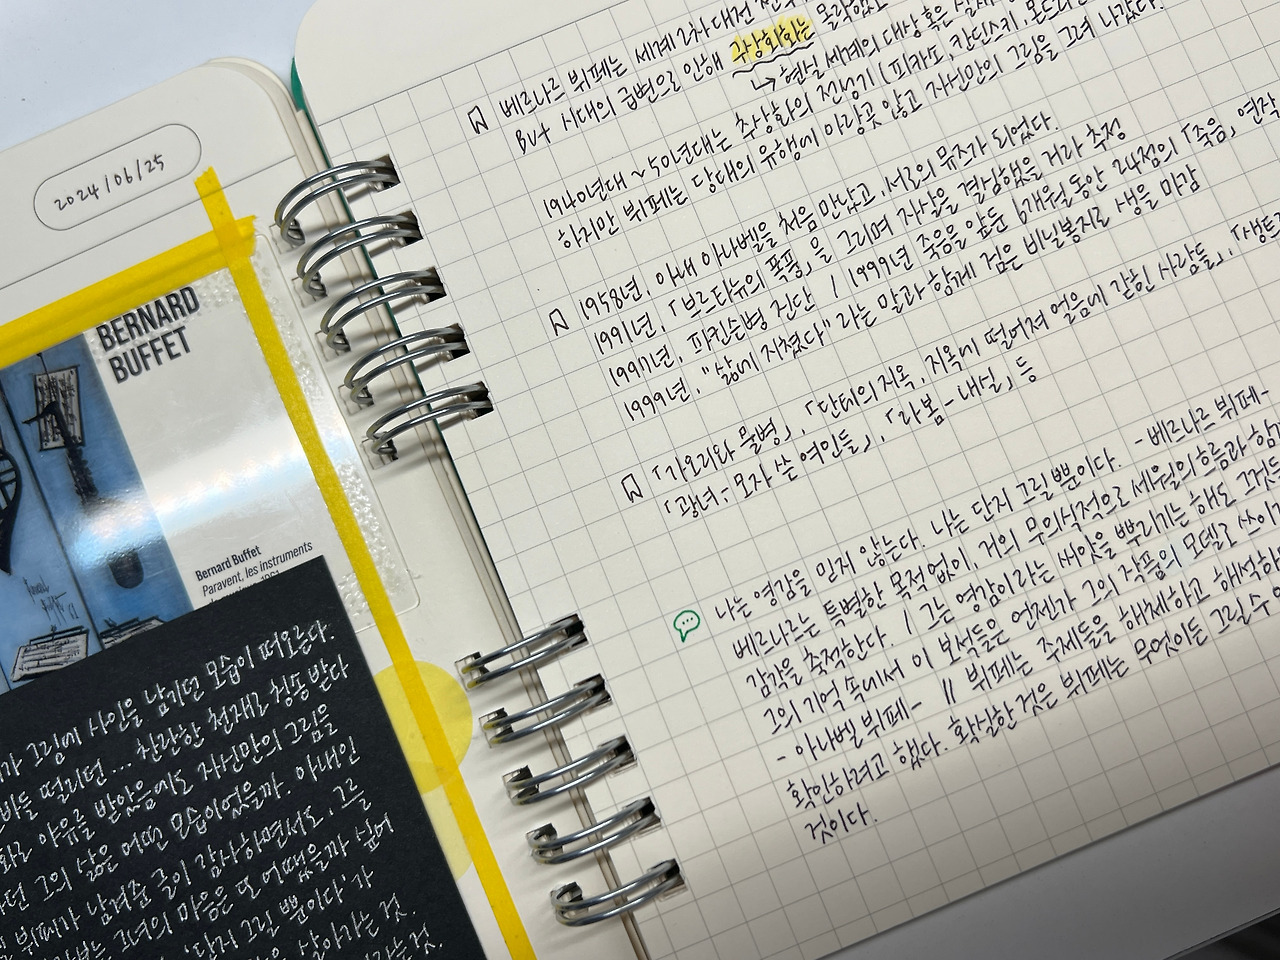 2024/06/25
BERNARD
BUFFET
Bernard Buffet
Paravent, les instruments
가 그림에 사인을 남기던 모습이 떠오른다.
떨리던... 찬란한 천재로 칭송받다
야유를 받았음에도 자신만의 그림을
그의 삶은 어떤 모습이었을까. 아내인
뷔페가 남겨준 글이 감사하면서도, 그를
그녀의 마음은 또 어땠을까 싶어
'단지 그릴 뿐이다'가
살아가는 것.
베르나르 뷔페는 세계 2차대전
But 시대의 급변으로 인해 구상회화는 몰락했고
↳ 현실 세계의 대상 혹은
1940년대~50년대는 추상화의 전성기 (피카소, 칸딘스키,
하지만 뷔페는 당대의 유행에 아랑곳 않고 자신만의 그림을 그려 나갔다.
1958년, 아내 아나벨을 처음 만났고, 서로의 뮤즈가 되었다.
1991년, 「브르타뉴의 폭풍」을 그리며 자살을 결심했을 거라 추정
1997년, 파킨슨병 진단 / 1999년 죽음을 앞둔 6개월 동안 24점의 「죽음」 연작
1999년, "삶에 지쳤다" 라는 말과 함께 검은 비닐봉지로 생을 마감
「가오리와 물병」, 「단테의 지옥, 지옥에 떨어져 얼음에 갇힌 사람들」,
「광년-모자 쓴 여인들」, 「라 봄-내실」 등
나는 영감을 믿지 않는다. 나는 단지 그릴 뿐이다. -베르나르 뷔페-
베르나르는 특별한 목적 없이, 거의 무의식적으로 세월의 흐름과 함께
감각을 축적한다. / 그는 영감이라는 씨앗을 뿌리기는 해도 그것
그의 기억 속에서 이 보석들은 언젠가 그의 작품의 모델로 쓰이
- 아나벨 뷔페- // 뷔페는 주제들을 해체하고 해석하
확인하려고 했다. 확실한 것은 뷔페는 무엇이든 그릴 수
것이다.